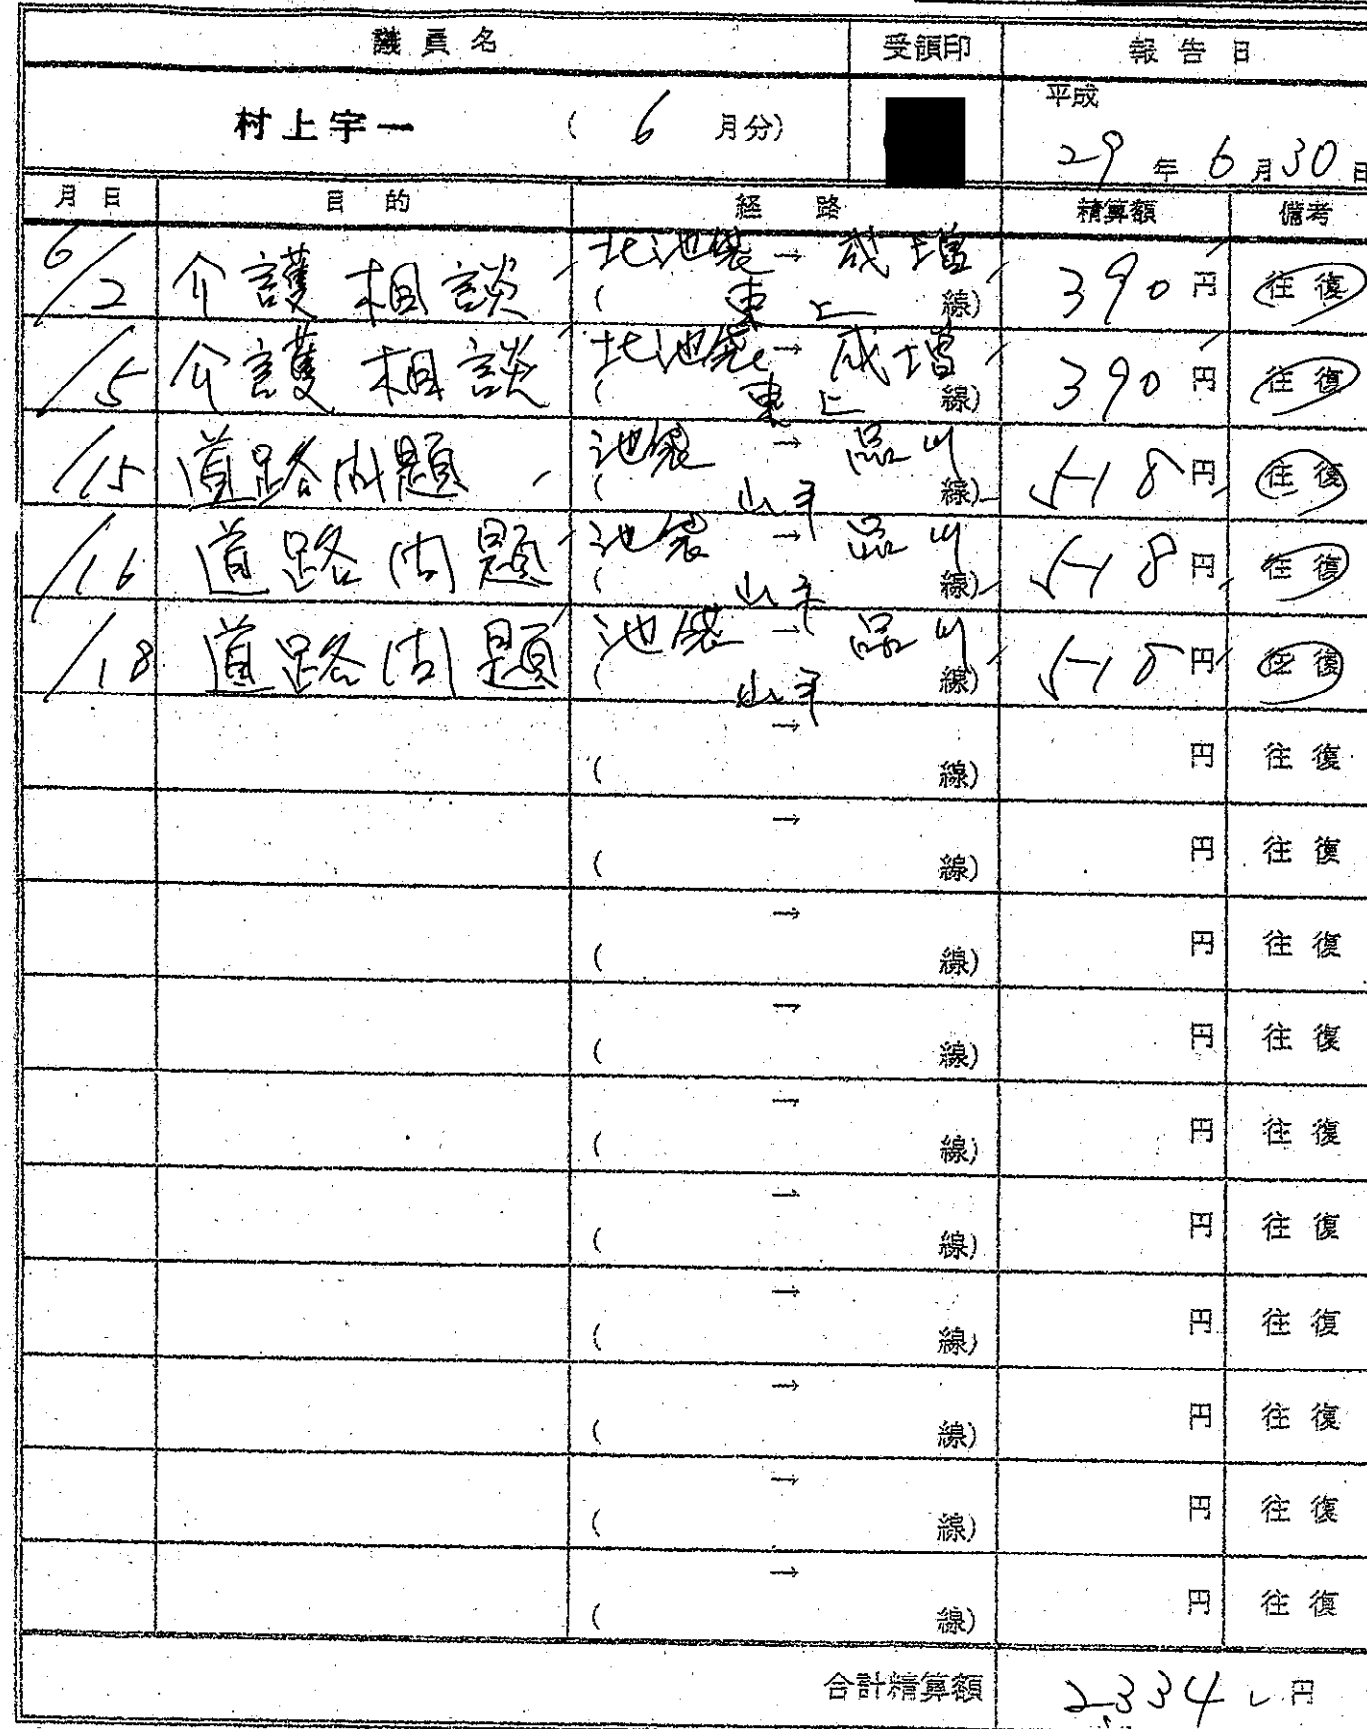 議員名 受領印 報告日
村上宇一 ( 6 月分) 平成
29 年 6 月 30 日
月日 目的 経路 精算額 備考
6/2 介護相談 北池袋 → 成増 390 円 往復
( 東上 線)
/5 介護相談 北池袋 → 成増 390 円 往復
( 東上 線)
/15 道路問題 池袋 → 品川 518 円 往復
( 山手 線)
/16 道路問題 池袋 → 品川 518 円 往復
( 山手 線)
/18 道路問題 池袋 → 品川 518 円 往復
( 山手 線)
→ 円 往復
( 線)
→ 円 往復
( 線)
→ 円 往復
( 線)
→ 円 往復
( 線)
→ 円 往復
( 線)
→ 円 往復
( 線)
→ 円 往復
( 線)
→ 円 往復
( 線)
→ 円 往復
( 線)
→ 円 往復
( 線)
合計精算額 2,334 円